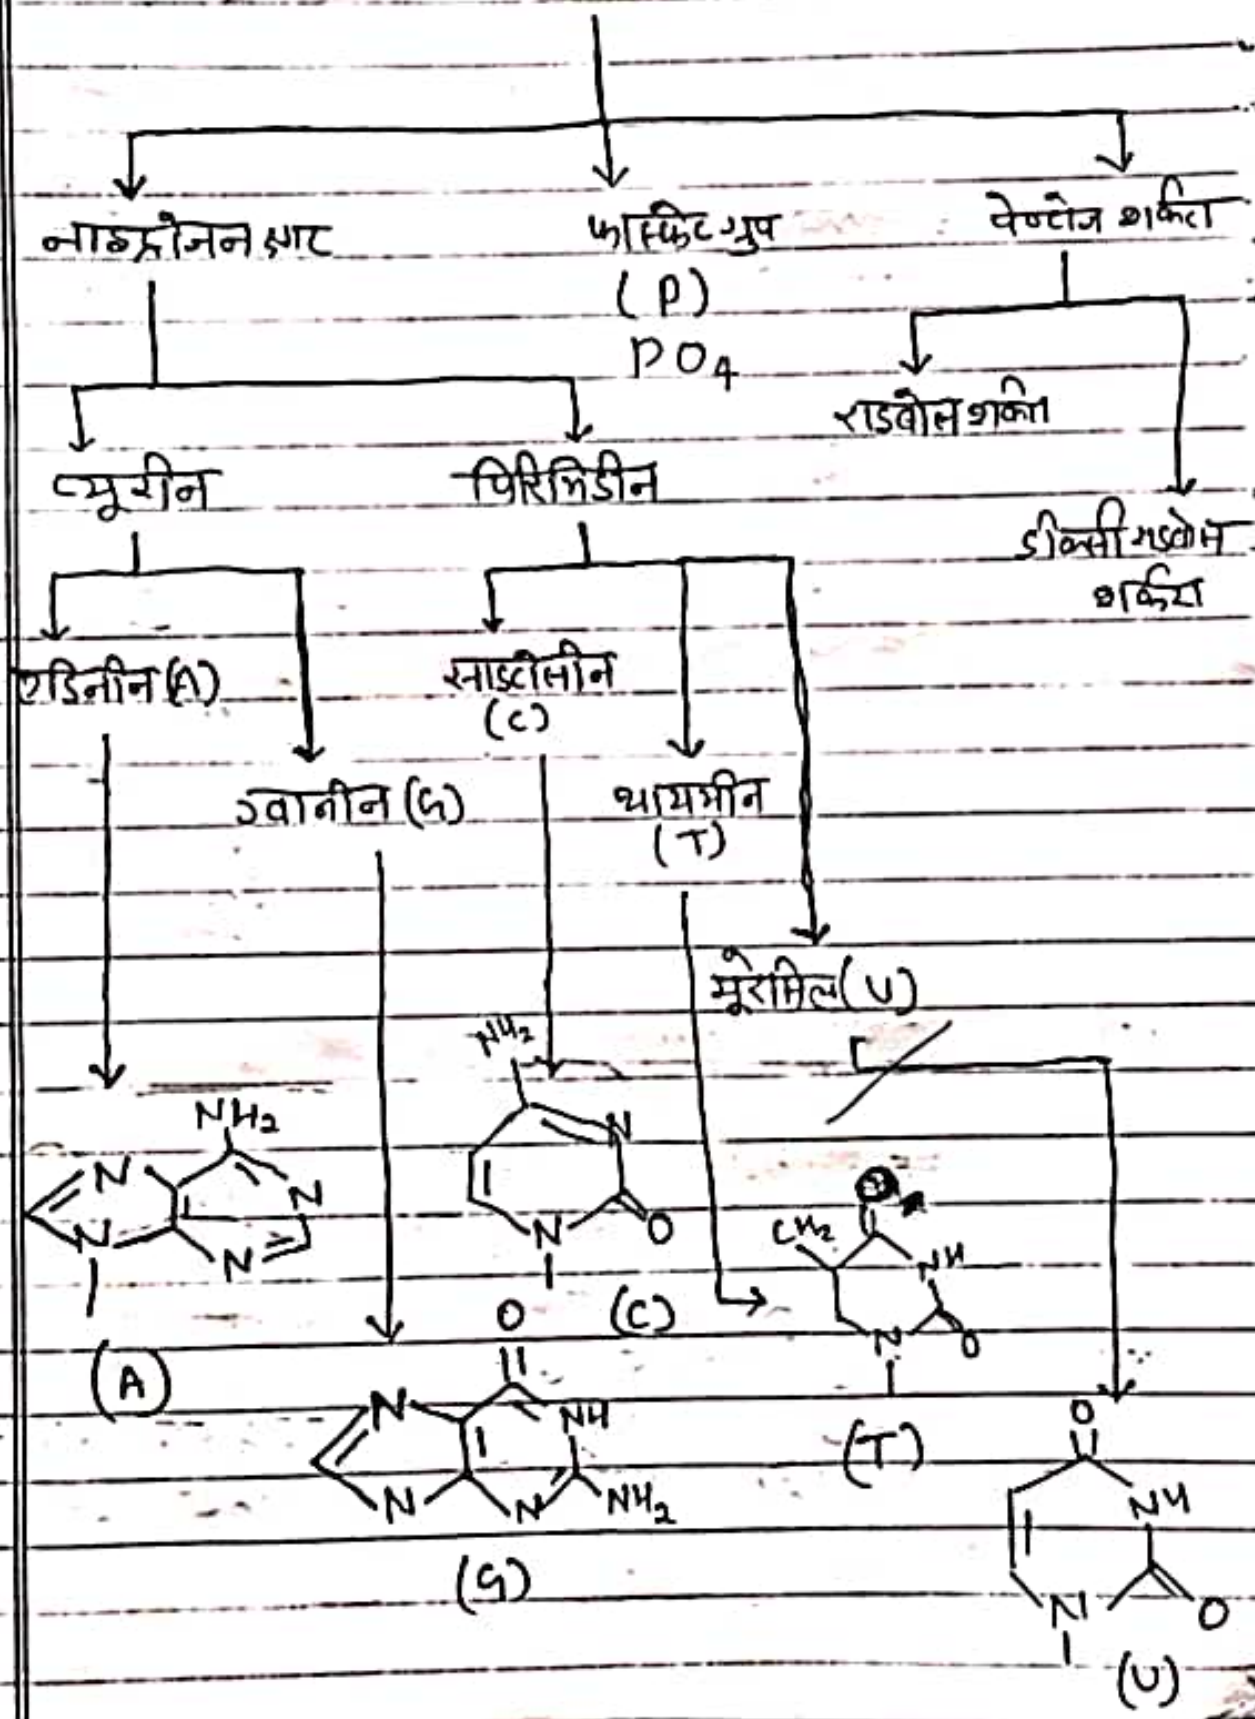 नाइट्रोजन क्षार
फास्फेट ग्रुप
(P)
PO4
पेण्टोज शर्करा
राइबोस शर्करा
डीऑक्सी राइबोस
शर्करा
प्यूरीन
पिरिमिडीन
एडिनीन (A)
ग्वानीन (G)
साइटोसीन
(C)
थायमीन
(T)
यूरेसिल (U)
NH2
N
N
N
N
(A)
NH2
N
N
O
(C)
O
N
NH
N
N
NH2
(G)
CH2
NH
N
O
(T)
O
NH
N
O
(U)